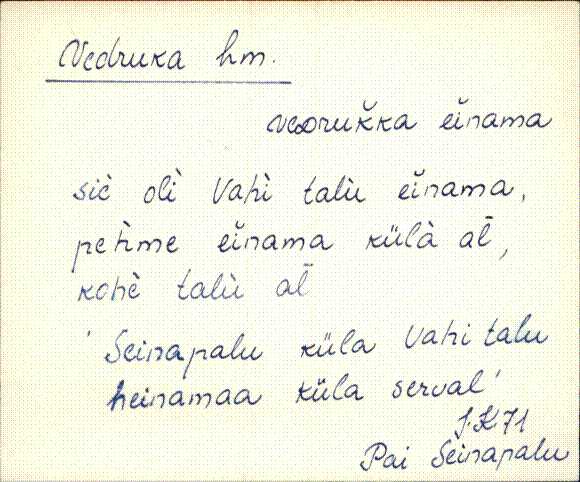 Vedruka hm.
vedruk̆ka ĕinama
siè olì Vahì talù ĕinama,
pehme ĕinama külà al̄,
kohè talù al̄
' Seinapalu küla Vahi talu
heinamaa küla serval '
J.K 71
Pai Seinapalu